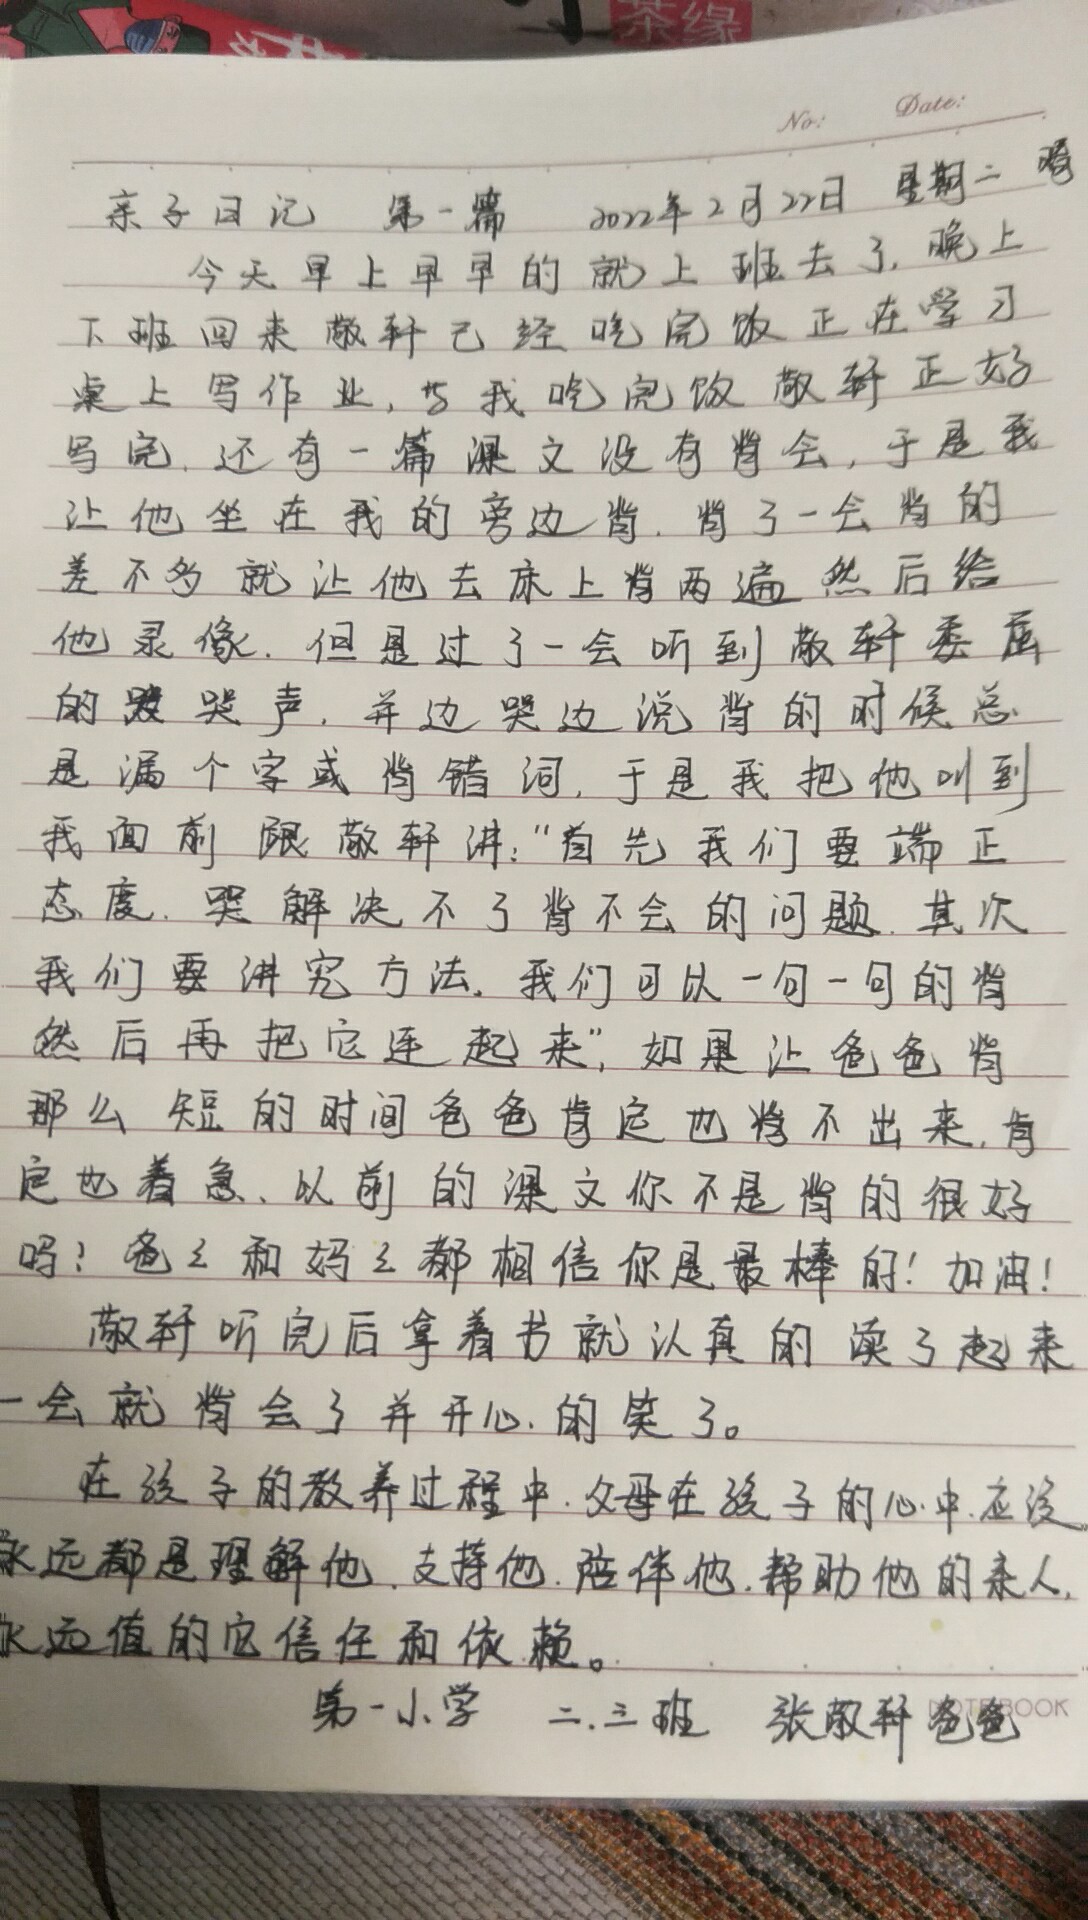 茶缘
No: Date:
亲子日记 第一篇 2022年2月22日 星期二 晴
今天早上早早的就上班去了,晚上
下班回来敬轩已经吃完饭正在学习
桌上写作业,当我吃完饭敬轩正好
写完,还有一篇课文没有背会,于是我
让他坐在我的旁边背,背了一会背的
差不多就让他去床上背两遍然后给
他录像.但是过了一会听到敬轩委屈
的哭声,并边哭边说背的时候总
是漏个字或背错词,于是我把他叫到
我面前跟敬轩讲:“首先我们要端正
态度.哭解决不了背不会的问题.其次
我们要讲究方法,我们可以一句一句的背
然后再把它连起来”,如果让爸爸背
那么短的时间爸爸肯定也背不出来,肯
定也着急、以前的课文你不是背的很好
吗!爸々和妈々都相信你是最棒的!加油!
敬轩听完后拿着书就认真的读了起来
一会就背会了并开心的笑了。
在孩子的教养过程中.父母在孩子的心中应该
永远都是理解他.支持他.陪伴他.帮助他的亲人,
永远值的它信任和依赖。
第一小学 二.三班 张敬轩爸爸
NOTEBOOK